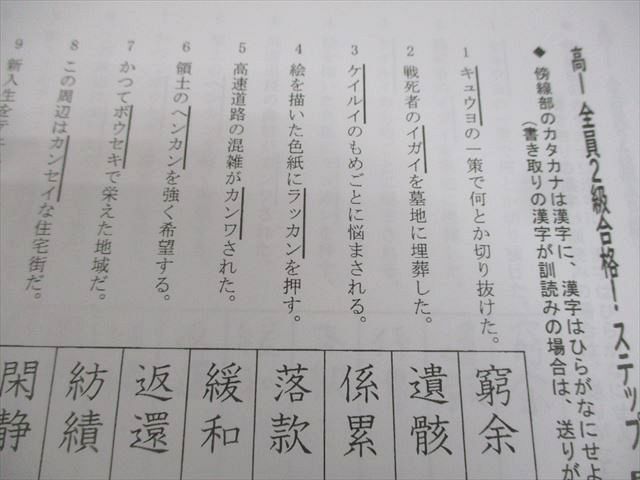 高一 全員2級合格！ステップ
◆ 傍線部のカタカナは漢字に、漢字はひらがなにせよ
（書き取りの漢字が訓読みの場合は、送りが
1 キュウヨの一策で何とか切り抜けた。
2 戦死者のイガイを墓地に埋葬した。
3 ケイルイのもめごとに悩まされる。
4 絵を描いた色紙にラッカンを押す。
5 高速道路の混雑がカンワされた。
6 領土のヘンカンを強く希望する。
7 かつてボウセキで栄えた地域だ。
8 この周辺はカンセイな住宅街だ。
9 新入生をテニ
窮余
遺骸
係累
落款
緩和
返還
紡績
閑静